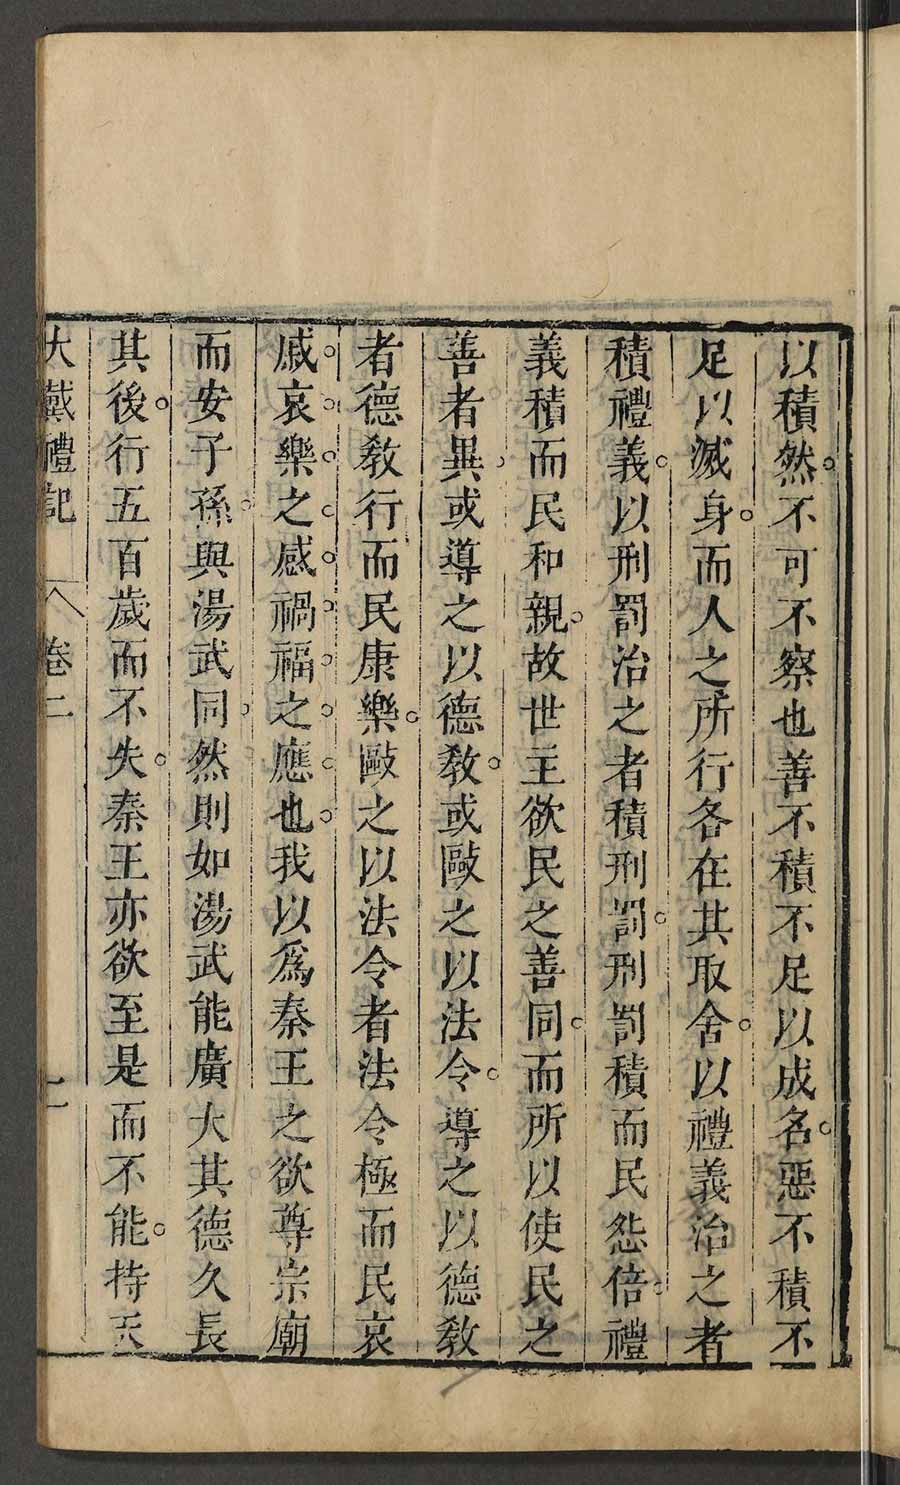 以積然不可不察也善不積不足以成名惡不積不
足以滅身而人之所行各在其取舍以禮義治之者
積禮義以刑罰治之者積刑罰刑罰積而民怨倍禮
義積而民和親故世主欲民之善同而所以使民之
善者異或導之以德教或歐之以法令導之以德教
者德教行而民康樂歐之以法令者法令極而民哀
戚哀樂之感禍福之應也我以爲秦王之欲尊宗廟
而安子孫與湯武同然則如湯武能廣大其德久長
其後行五百歲而不失秦王亦欲至是而不能持天
大戴禮記 卷二